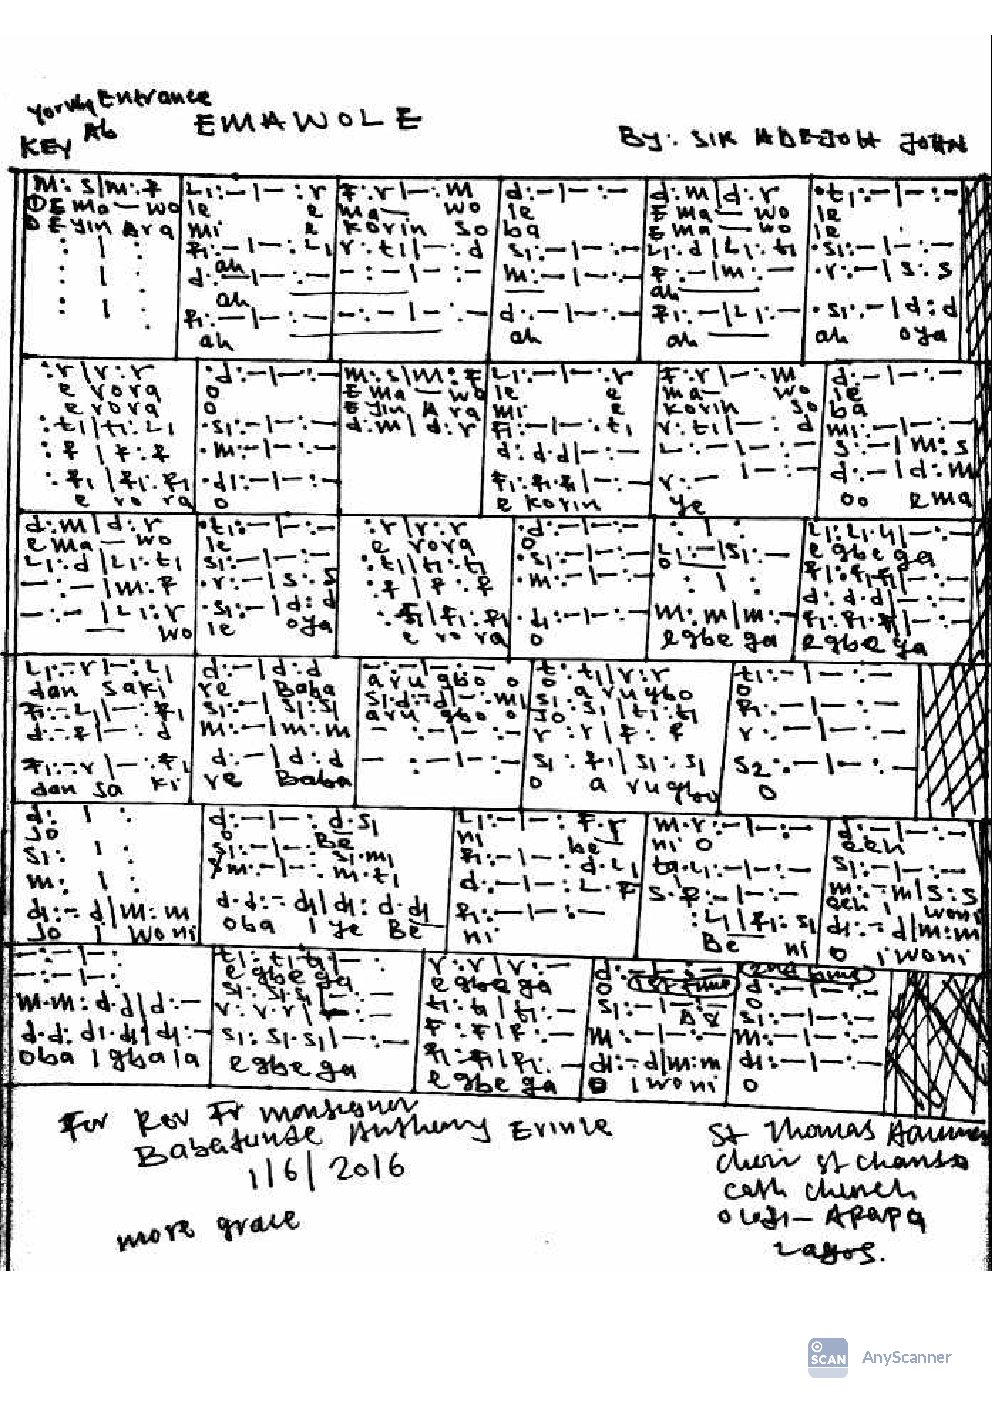 Yoruba Entrance
KEY Ab EMAWOLE
BY: SIR ADEJOH JOHN
m: s|m: f
① E ma — wo
② E yin Ara
L₁:-|-: r
le e
mi e
f₁:-|-: L₁
d:-|-:-
ah
f₁:-|-:-
ah
f: r|-: m
ma— wo
korin so
r: t₁|-: d
-:-|-:-
-:-|-:-
d:-|-:-
le
ba
s₁:-|-:-
m:-|-:-
d:-|-:-
ah
d: m|d: r
E ma — wo
E ma — wo
L₁: d|L₁: t₁
f:-|m:-
ah
f₁:-|L₁:-
ah
·t₁:-|-:-
le
le
·s₁:-|-:-
·r:-|s: s
·s₁:-|d: d
ah oya
: r|r: r
e rora
e rora
: t₁|t₁: L₁
: f|f: f
: f₁|f₁: f₁
e ro ra
·d:-|-:-
o
o
·s₁:-|-:-
·m:-|-:-
·d₁:-|-:-
o
m: s|m: f
E ma — wo
E yin Ara
d: m|d: r
L₁:-|-: r
le e
mi e
f₁:-|-: t₁
d: d·d|-:-
f₁: f₁·f₁|-:-
e korin
f: r|-: m
ma— wo
korin so
r: t₁|-: d
L:-|-:-
r:-|-:-
ye
d:-|-:-
le
ba
m₁:-|-:-
s:-|m: s
d:-|d: m
oo e ma
d: m|d: r
e ma — wo
L₁: d|L₁: t₁
-:-|m: f
-:-|L₁: r
wo
·t₁:-|-:-
le
s₁:-|-:-
·r:-|s: s
·s₁:-|d: d
le oya
: r|r: r
e rora
: t₁|t₁: t₁
: f|f: f
: f₁|f₁: f₁
e ro ra
·d:-|-:-
o
·s₁:-|-:-
·m:-|-:-
·d₁:-|-:-
o
: | :
L₁:-|s₁:-
o
: | :
m: m|m:-
egbe ga
L₁: L₁·L₁|-:-
egbe ga
f₁: f₁·f₁|-:-
d: d·d|-:-
f₁: f₁·f₁|-:-
egbe ga
L₁:-r|-: L₁
dan sa ki
f₁:-L₁|-: f₁
d:-f|-: d
f₁:-r|-: f₁
dan sa ki
d:-|d: d
re Baba
s₁:-|s₁: s₁
m:-|m: m
d:-|d: d
re Baba
-:-|-:-
arugbo o
s₁: d:-d|-: m₁
aru gbo o
-:-|-:-
-:-|-:-
t₁: t₁|r: r
o a rugbo
s₁: s₁|t₁: t₁
jo
r: r|f: f
s₁: f₁|s₁: s₁
o a rugbo
t₁:-|-:-
o
f₁:-|-:-
r:-|-:-
s₂:-|-:-
o
d: | :
jo
s₁: | :
m: | :
d₁:-d|m: m
jo i wo ni
d:-|-: d·s₁
o Be
s₁:-|-: s₁·m₁
m:-|-: m·t₁
d·d:-d₁|d₁: d·d₁
oba i ye Be
L₁:-|-: f·r
ni be
f₁:-|-: d·L₁
d:-|-: L·f
f₁:-|-:-
ni
m·r:-|-:-
ni o
ta·L₁:-|-:-
s·f:-|-:-
: L₁|f₁: s₁
Be ni
d:-|-:-
eeh
s₁:-|-:-
m:-m|s: s
eeh i woni
d₁:-d|m: m
o i woni
-:-|-:
-:-|-:
m·m: d·d|d:-
d·d: d₁·d₁|d₁:-
oba igbala
t₁: t₁·t₁|-:-
egbe ga
s₁: s₁·s₁|-:-
r: r·r|-:-
s₁: s₁·s₁|-:-
egbe ga
r: r|r:-
egbe ga
t₁: t₁|t₁:-
f: f|f:-
f₁: f₁|f₁:-
egbe ga
d:-|-:-
o 1st time
s₁:-|-:-
m:-|-:-
d₁:-d|m: m
o i woni
2nd time
d:-|-:-
o
s₁:-|-:-
m:-|-:-
d₁:-|-:-
o
For Rev Fr monsignor
Babatunde Anthony Erinle
1/6/2016
more grace
St Thomas
choir st
cath church
Olodi - APAPA
Lagos.
SCAN AnyScanner